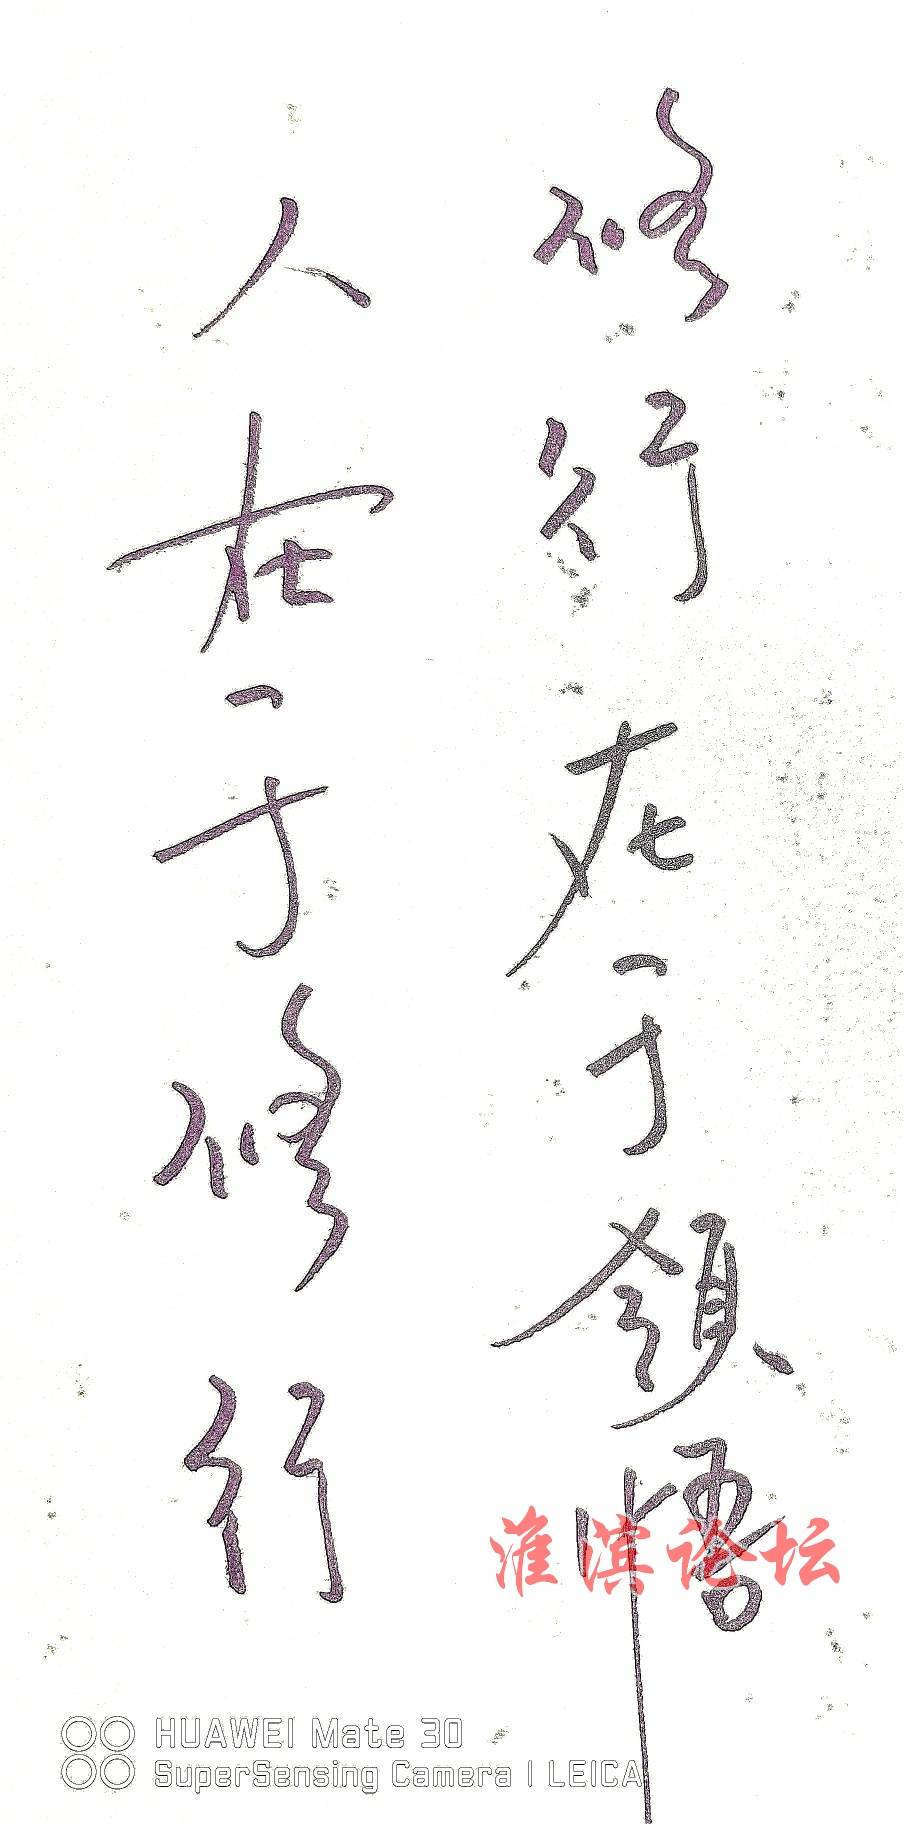 修行在于領悟
人在于修行
淮滨论坛
HUAWEI Mate 30
SuperSensing Camera | LEICA